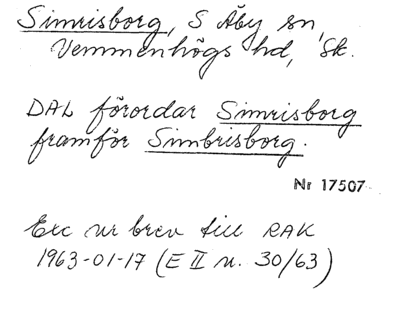 Simrisborg, S Åby sn,
Vemmenhögs hd, Sk.
DAL förordar Simrisborg
framför Simbrisborg.
Nr 17507
Exc ur brev till RAK
1963-01-17 (E II n. 30/63)